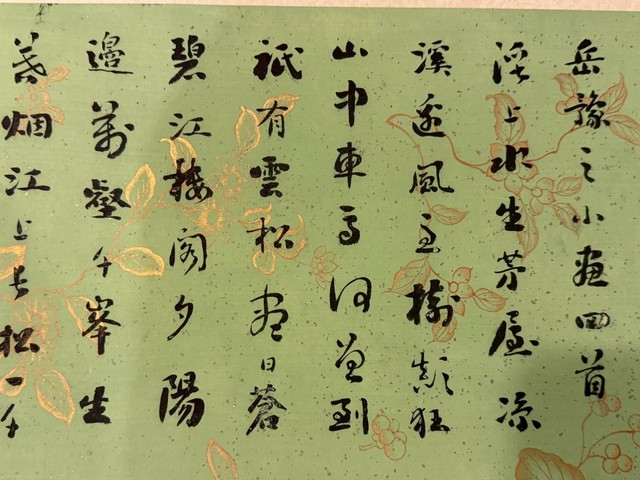 岳豫之小畫四首
上水生茅屋凉
溪風至樹顛狂
山中車馬何曾到
祇有雲松盡日蒼
碧江樓閣夕陽
邊萬壑千峯生
暮烟江上長松一千